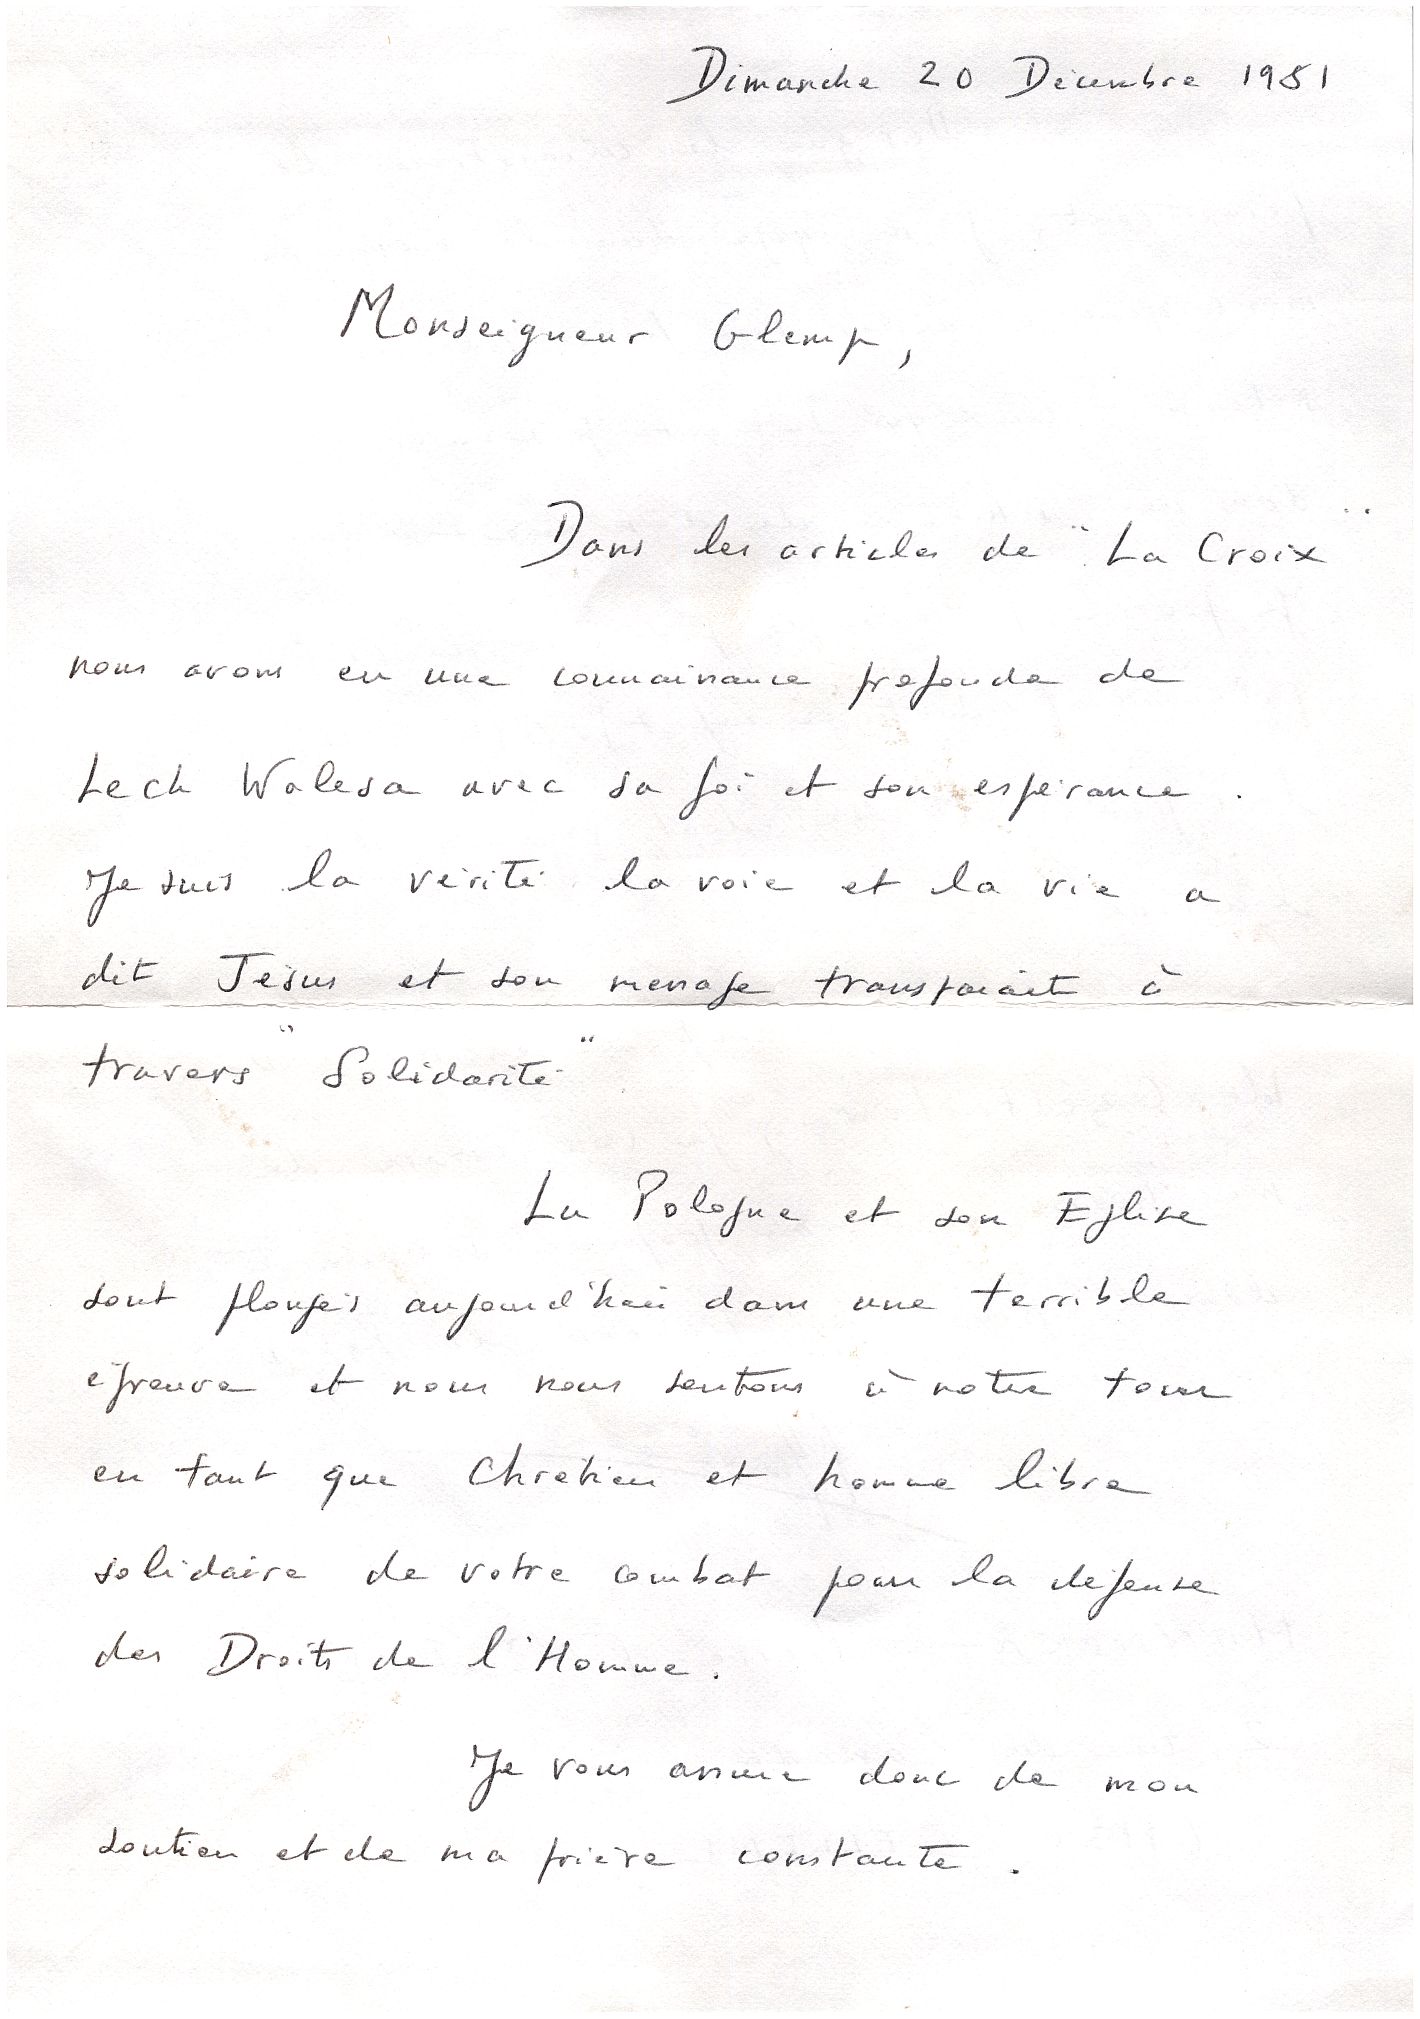 Dimanche 20 Décembre 1981
Monseigneur Glemp,
Dans les articles de "La Croix"
nous avons eu une connaissance profonde de
Lech Walesa avec sa foi et son espérance.
Je suis la vérité la voie et la vie a
dit Jésus et son message transparait à
travers "Solidarité"
La Pologne et son Eglise
sont plongés aujourd'hui dans une terrible
épreuve et nous nous sentons à notre tour
en tant que Chrétien et homme libre
solidaire de votre combat pour la défense
des Droits de l'Homme.
Je vous assure donc de mon
soutien et de ma prière constante.